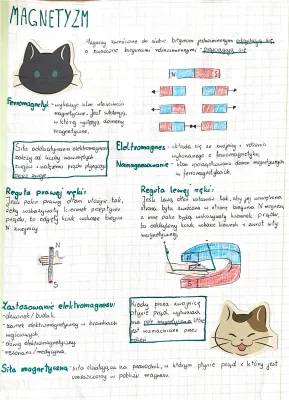 MAGNETYZM
Magnesy zwrócone do siebie biegunami jednoimiennymi odpychają się,
a zwrócone biegunami różnoimiennymi przyciągają się
N S
Ferromagnetyk - wykazuje silne właściwości
magnetyczne. Jest
w której występują domeny
magnetyczne.
Siła oddziaływania elektromagnesu
zależy od liczby nawiniętych
zwojów i natężenia prądu płynącego
przez zwoje
Elektromagnes - składa się ze zwojnicy i rdzenia
wykonanego z ferromagnetyka.
Namagnesowanie - stan uporządkowania domen magnetycznych
w ferromagnetykach.
Reguła prawej ręki:
Jeśli prawą dłoń ułożymy tak,
żeby wskazywały kierunek przepływu
prądu, to odgięty kciuk wskaże biegun
N zwojnicy.
N
S
Reguła lewej ręki:
Jeśli lewą dłoń ustawimy tak, aby jej wewnętrzna
strona była zwrócona w stronę bieguna N magnesu,
a inne palce będą wskazywały kierunek prądu,
to odchylony kciuk wskaże kierunek i zwrot siły
magnetycznej.
Zastosowanie elektromagnesu:
- dzwonek/budzik
- zamek elektromagnetyczny w bramkach
wejściowych,
- dźwig elektromagnetyczny
- rezonans/medycyna.
Kiedy przez zwojnicę
płynie prąd wytwarza
ona pole magnetyczne które
jest wzmacniane przez
rdzeń
Siła magnetyczna - siła działająca na przewodnik, w którym płynie prąd i który jest
umieszczony w pobliżu magnesu.